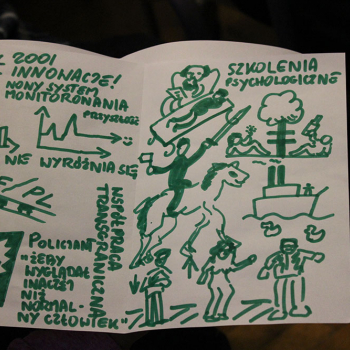 2001
INNONACJE!
NOWY SYSTEM
MONITOROWANIA
PRZYSZŁOŚĆ
NIE WYRÓŻNIA SIĘ
E/PL
WSPÓŁPRACA
TRANSGRANICZNA
POLICJANT
"ŻEBY
WYGLĄDAŁ
INACZEJ
NIŻ
NORMAL-
NY CZŁOWIEK"
SZKOLENIA
PSYCHOLOGICZNE